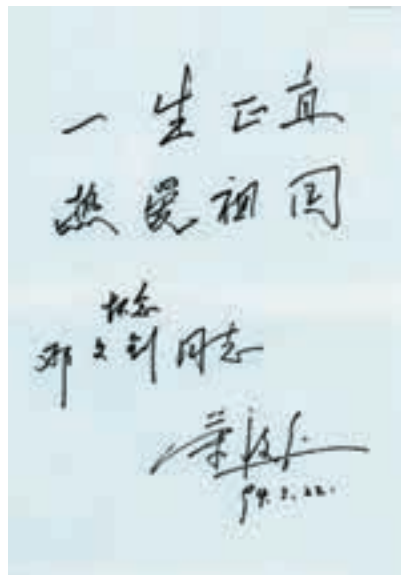 一生正直
热爱祖国
怀念
邓文钊同志
荣毅仁
94.3.22.